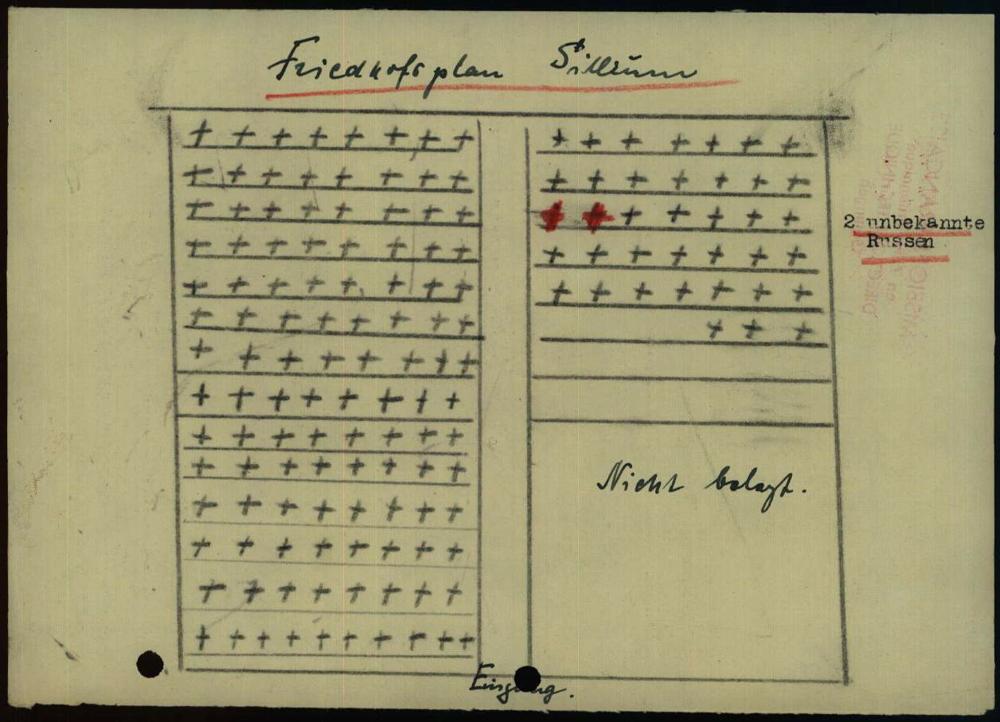 Friedhofsplan Sillium
2 unbekannte
Russen
Nicht belegt.
Eingang.